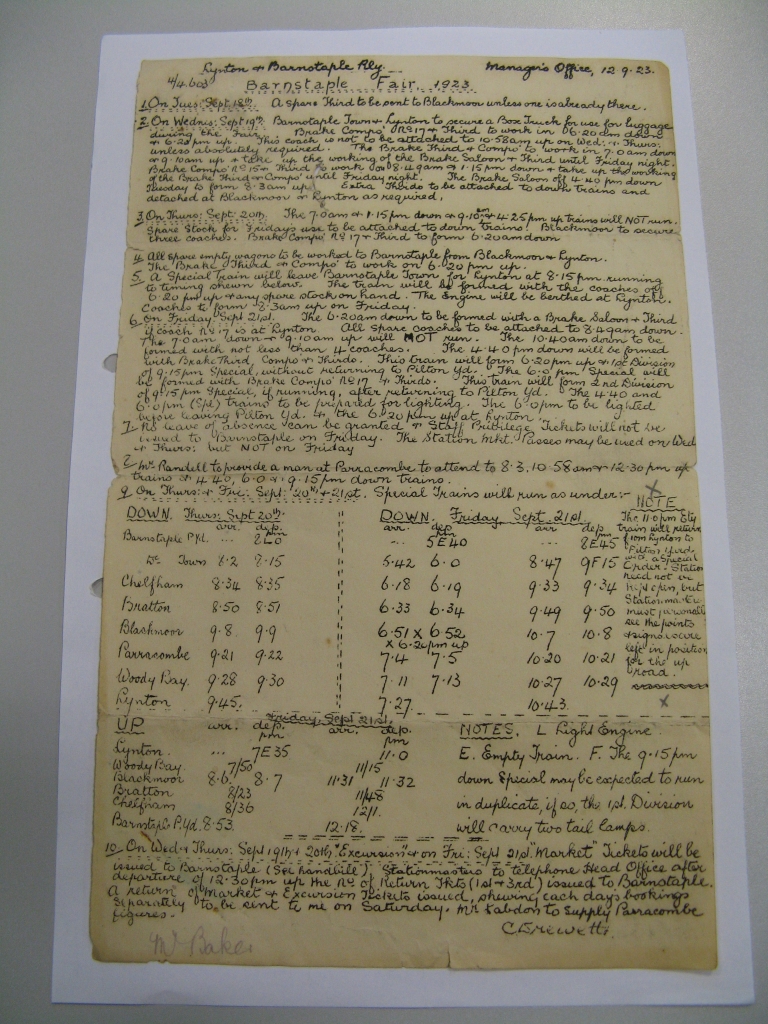 Lynton & Barnstaple Rly. Manager's Office, 12.9.23.
Barnstaple Fair, 1923
1. On Tues: Sept. 18th. A spare Third to be sent to Blackmoor unless one is already there.
2. On Wednes: Sept 19th. Barnstaple Town & Lynton to secure a Box Truck for use for luggage
during the Fair. Brake Compo' No 17 & Third to work in 6.20 am down
& 6.20 pm up. This coach is not to be attached to 10.58 am up on Wed: & Thurs:
unless absolutely required. The Brake Third & Compo' to work in 7.0 am down
& 9.10 am up & take up the working of the Brake Saloon & Third until Friday night.
Brake Compo' No 15 & Third to work 8.49 am & 1.15 pm down & take up the working
of the Brake Third & Compo' until Friday night. The Brake Saloon off 4.40 pm down
Tuesday to form 8.3 am up. Extra Thirds to be attached to down trains and
detached at Blackmoor & Lynton as required.
3. On Thurs: Sept. 20th. The 7.0 am & 1.15 pm down & 9.10 am & 4.25 pm up trains will NOT run.
Spare Stock for Fridays use to be attached to down trains. Blackmoor to secure
three coaches. Brake Compo' No 17 & Third to form 6.20 am down
4. All spare empty wagons to be worked to Barnstaple from Blackmoor & Lynton.
The Brake Third & Compo' to work on 6.20 pm up.
5. A Special train will leave Barnstaple Town for Lynton at 8.15 pm running
to timing shewn below. The train will be formed with the coaches off
6.20 pm up & any spare stock on hand. The Engine will be berthed at Lynton.
Coaches to form 8.3 am up on Friday.
6. On Friday Sept 21st. The 6.20 am down to be formed with a Brake Saloon & Third
if coach No 17 is at Lynton. All spare coaches to be attached to 8.49 am down.
The 7.0 am down & 9.10 am up will NOT run. The 10.40 am down to be
formed with not less than 4 coaches. The 4.40 pm down will be formed
with Brake Third, Compo & Thirds. This train will form 6.20 pm up & 1st Division
of 9.15 pm Special, without returning to Pilton Yd. The 6.0 pm Special will
be formed with Brake Compo' No 17 & Thirds. This train will form 2nd Division
of 9.15 pm Special, if running, after returning to Pilton Yd. The 4.40 and
6.0 pm trains to be prepared for lighting. The 6.0 pm to be lighted
before leaving Pilton Yd. & the 6.20 pm up at Lynton.
7. No leave of absence can be granted & Staff Privilege Tickets will not be
issued to Barnstaple on Friday. The Station Mkt. Passes may be used on Wed
& Thurs: but NOT on Friday
8. Mr Randell to provide a man at Parracombe to attend to 8.3, 10.58 am & 12.30 pm up
trains & 4.40, 6.0 & 9.15 pm down trains.
9. On Thurs: & Fri: Sept: 20th & 21st. Special Trains will run as under:-
DOWN. Thurs: Sept 20th.
arr. dep. pm
Barnstaple P.Yd. ... 8L0
Do. Town 8.2 8.15
Chelfham 8.34 8.35
Bratton 8.50 8.51
Blackmoor 9.8. 9.9
Parracombe 9.21 9.22
Woody Bay. 9.28 9.30
Lynton 9.45.
DOWN. Friday Sept 21st.
arr. dep pm arr dep pm
... 5E40 8E45
5.42 6.0 8.47 9F15
6.18 6.19 9.33 9.34
6.33 6.34 9.49 9.50
6.51 X 6.52 10.7 10.8
X 6.20 pm up
7.4 7.5 10.20 10.21
7.11 7.13 10.27 10.29
7.27 10.43.
X
NOTE
The 11.0 pm Ety
train will return
from Lynton to
Pilton Yard
with a Special
Order. Stations
need not be
kept open, but
Station master
must personally
see the points
& signals are
left in position
for the up
road.
X
UP Friday, Sept 21st.
arr. dep. pm arr. dep. pm
Lynton ... 7E35 11.0
Woody Bay. 7/50 11/15
Blackmoor 8.6 8.7 11.31 11.32
Bratton 8/23 11/48
Chelfham 8/36 12/1.
Barnstaple P.Yd. 8.53. 12.18.
NOTES. L Light Engine
E. Empty Train. F. The 9.15 pm
down Special may be expected to run
in duplicate, if so, the 1st. Division
will carry two tail lamps.
10. On Wed & Thurs: Sept 19th & 20th "Excursion" & on Fri: Sept 21st "Market" Tickets will be
issued to Barnstaple (See handbill). Stationmasters to telephone Head Office after
departure of 12.30 pm up the No of Return Tkts (1st & 3rd) issued to Barnstaple.
A return of Market & Excursion Tickets issued, shewing each days bookings
separately to be sent to me on Saturday. Mr to supply Parracombe
figures.
Mr Baker